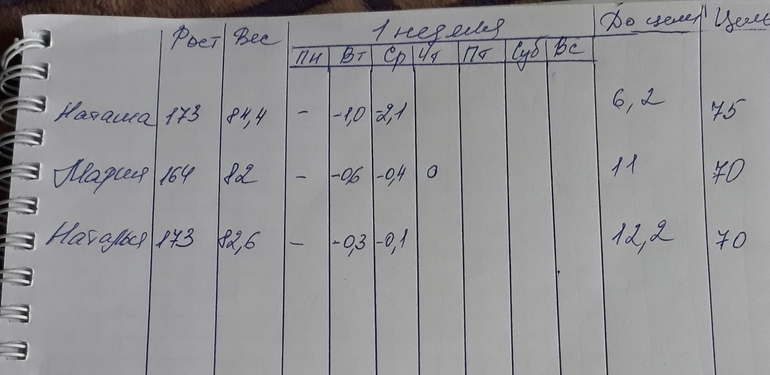 Рост Вес 1 неделя До цели Цель
Пн Вт Ср Чт Пт Суб Вс
Наташа 173 84,4 - -1,0 -2,1 6,2 75
Мария 164 82 - -0,6 -0,4 0 11 70
Наталья 173 82,6 - -0,3 -0,1 12,2 70